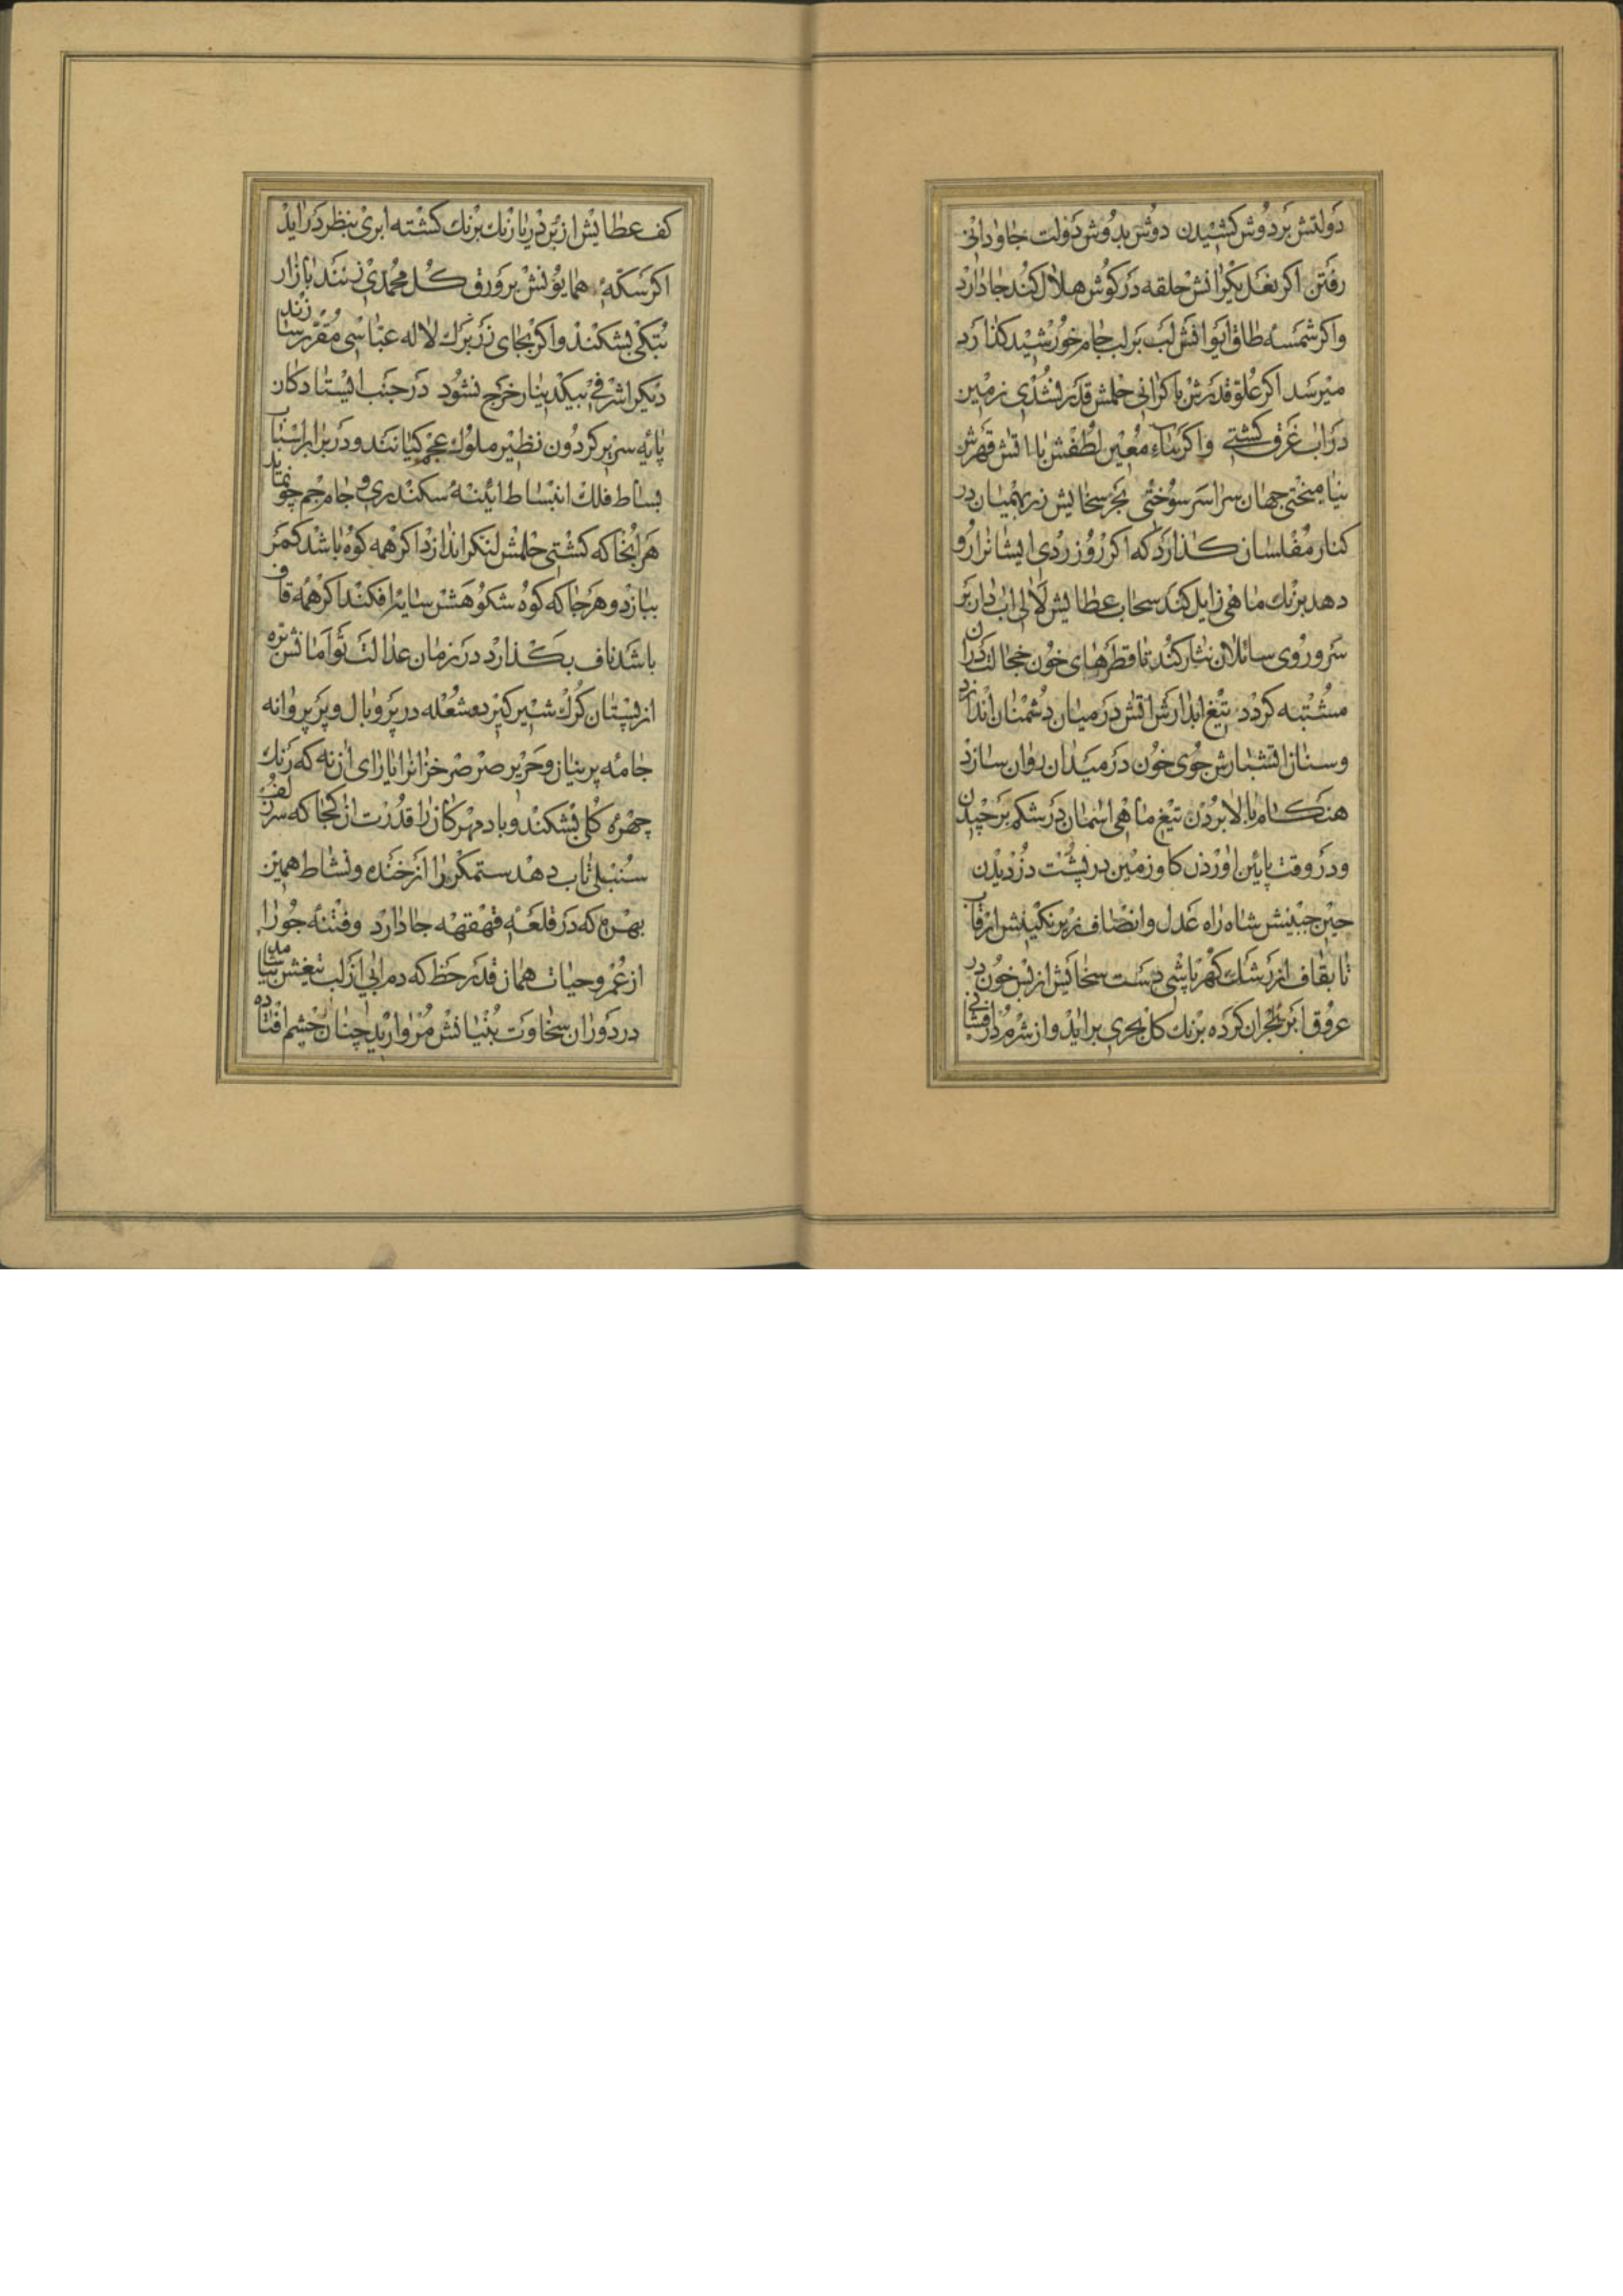 دولتش بر دوش کشیدن دوش بدوش دولت جاودانی
رفتن اکر نعل یکرانش حلقه در کوش هلال کند جا دارد
واکر شمسهٔ طاق ایوانش لب بر لب جام خورشید کذارد
میرسد اکر علو قدرش با کرانی حلمش قدر نشدی زمین
در اب غرق کشتی واکر ماء معین لطفش با اتش قهرش
نیامیختی جهان سراسر سوختی بحر سخایش زر بهمیان در
کنار مفلسان کذارد که اکر روز زردی ایشانرا رو
دهد برنك ماهی زایل کند سحاب عطایش لالی ابدان بر
سر و روی سائلان نثار کند تا قطرهای خون خجالت دران
مشتبه کردد تیغ ابدارش اتش در میان دشمنان اندازد
وسنان اتشبارش جوی خون در میدان روان سازد
هنکام بالا بردن تیغ ماهی اسمان در شکم بر چیدن
ودر وقت پایین اوردن کاو زمین در پشت دزدیدن
چین جبینش شاه راه عدل وانصاف زیر نکینش از قاف
تا بقاف از رشك کهر پاشی دست سخایش از بس خون در
عروق ابر بحران کرده برنك کل بحری براید واز شرم درافشانی
کف عطایش از بر دریا زنك برنك کشته ابری بنظر دراید
اکر سکهٔ همایونش بر ورق کل محمدی زنند بازار
بتکی بشکند واکر بجای زر برك لاله عباسی مقرر سازند
دیکر اشرفی بیکدینار خرج نشود در جنب ایستادکان
پایه سریر کردون نظیر ملوك عجم کیانند ودر برابر استان
بساط فلك انبساط ایئنهٔ سکندری و جام جم چو نماید
هر انجا که کشتی حلمش لنکر اندازد اکر همه کوه باشد کمر
ببازد وهر جا که کوه شکوهش سایه افکند اکر همه قاف
باشد ناف بکذارد در زمان عدالت توامانش بره
از پستان کرك شیر کیرد و شعله در پر وبال و پر پروانه
جامه پرنیان وحریر صرصر خزانرا یارای ان نه که رنك
چهرهٔ کلی بشکند وباد مهرکان را قدرت ان کجا که سر زلف
سنبلی تاب دهد ستمکر را از خنده ونشاط همین
بهره که در قلعهٔ قهقهه جا دارد وفتنه جو را
از عمر وحیات همان قدر حظ که دم ابی از لب تیغش بیاشامد
در دوران سخاوت بنیانش مروارید چنان از چشم افتاده